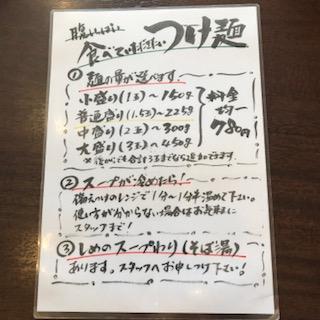 腹いっぱい
食べて頂きたい つけ麺
① 麺の量が選べます。
小盛り(1玉)〜150g
普通盛り(1.5玉)〜225g
中盛り(2玉)〜300g
大盛り(3玉)〜450g
料金均一 780円
※後からでも合計3玉までなら追加できます。
② スープが冷めたら!
備えつけのレンジで1分〜1分半温めて下さい。
使い方が分からない場合はお気軽に
スタッフまで!
③ しめのスープわり(そば湯)
あります。スタッフへお申しつけ下さい!